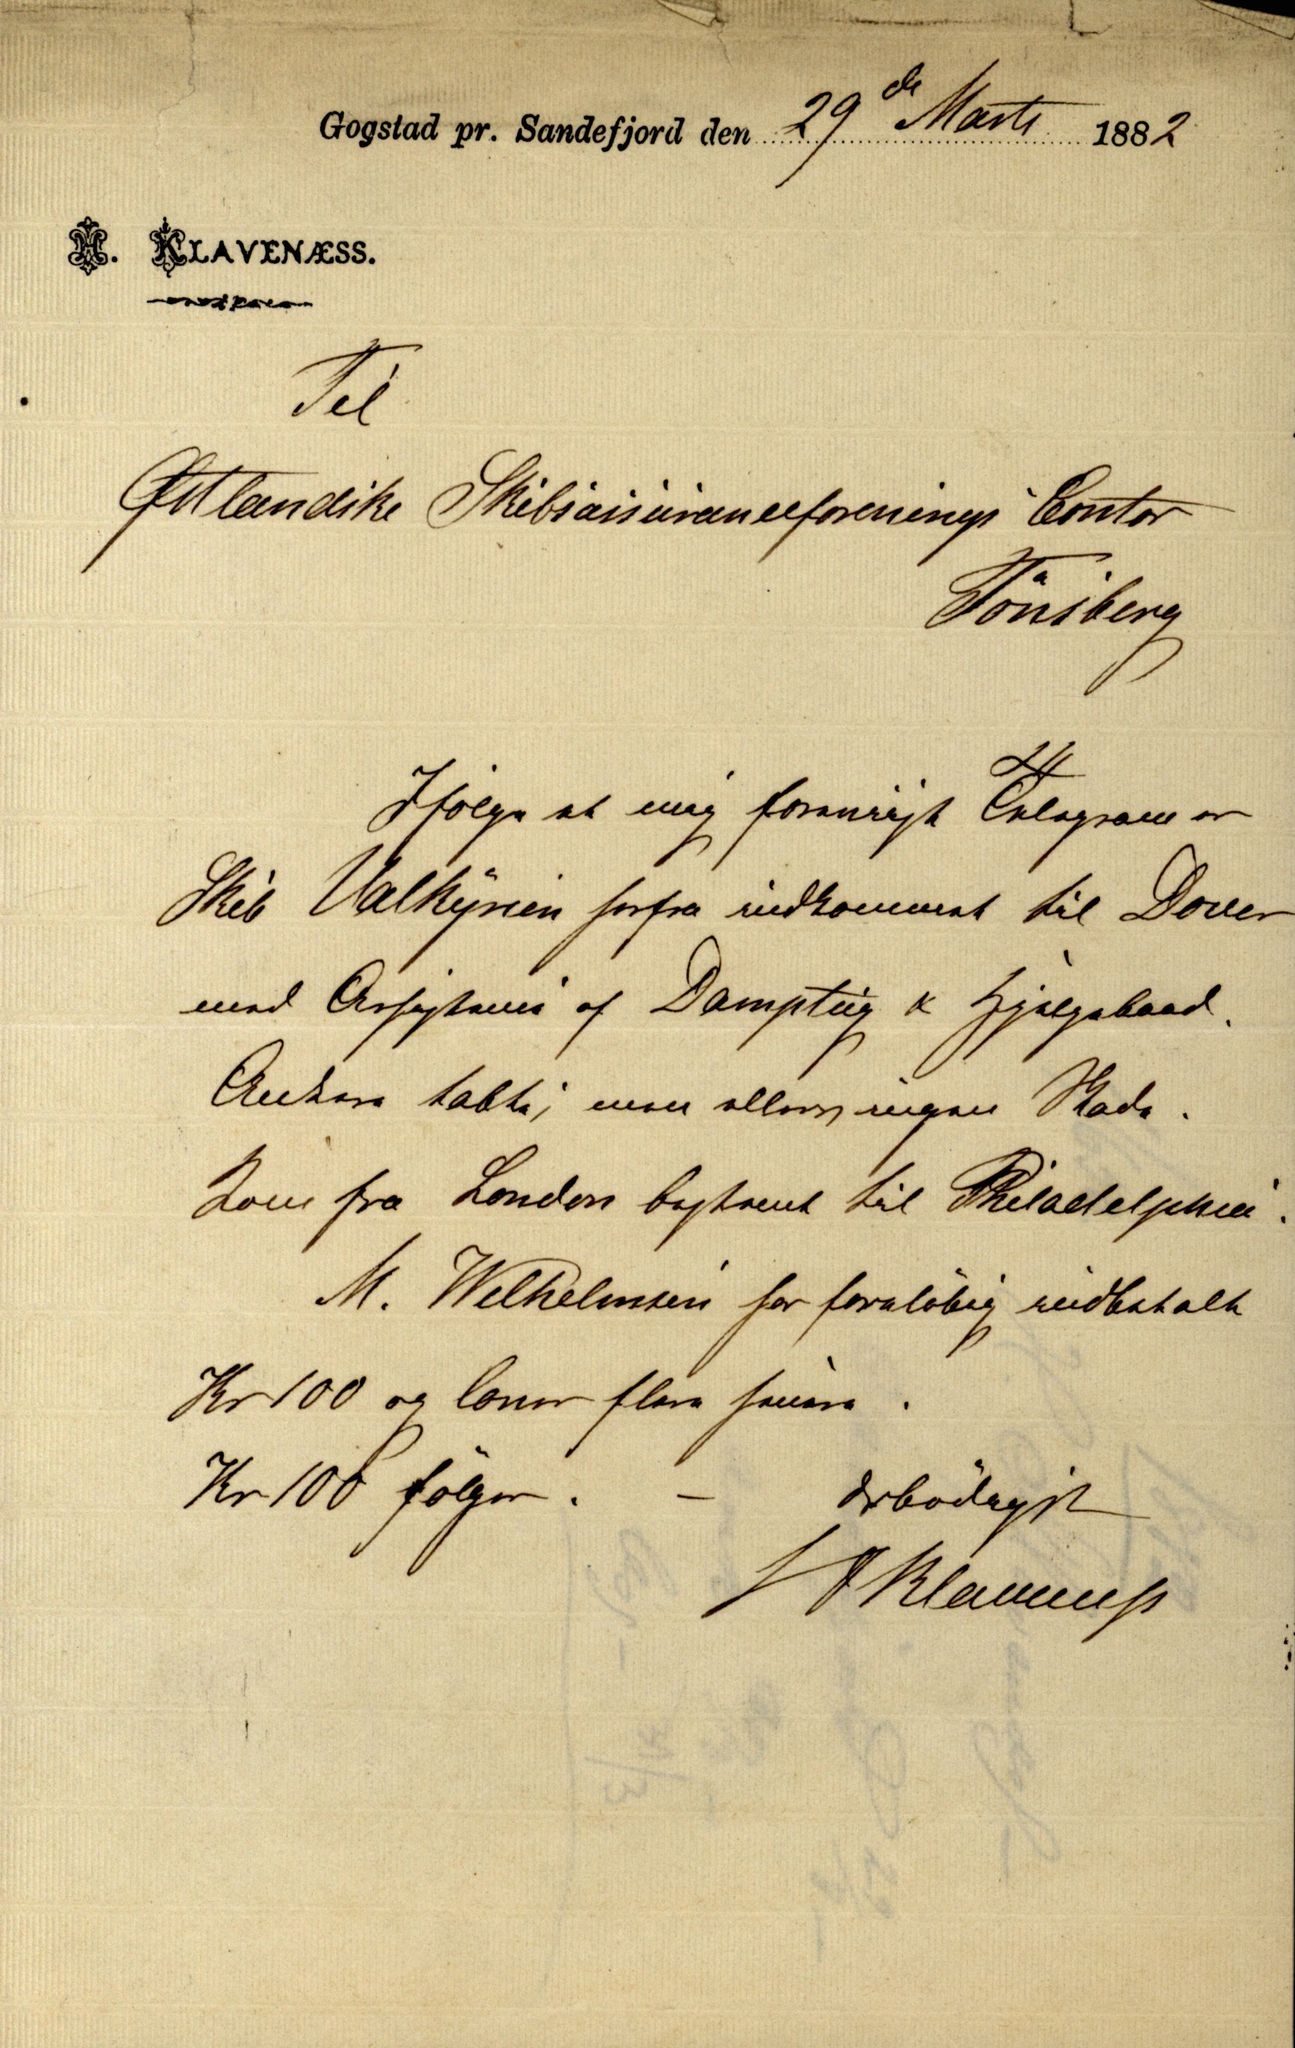 Gogstad pr. Sandefjord den 29de Marts 1882
H. KLAVENÆSS.
Til
Østlandske Skibsassuranceforenings Contor
Tönsberg
Ifölge et mig foreviist Telegram er
Skib Valkyrien herfra indkommet til Dover
med Assistance af Damptug & Hjælpebaad.
Ankere tabte; men ellers ingen Skade.
Kom fra London bestemt til Philadelphia.
M. Wilhelmsen har foreløbig indbetalt
Kr 100 og lover flere senere.
Kr 100 følger. — Ærbödigst
H Klaveness